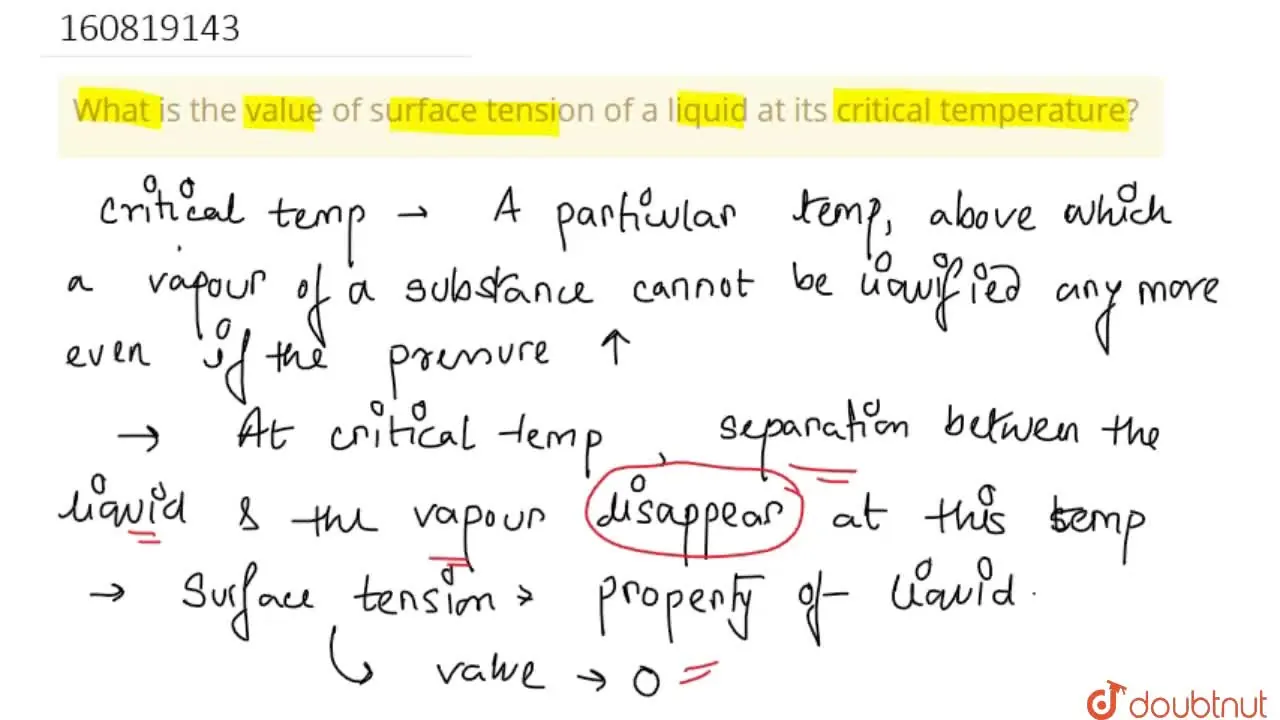 160819143
What is the value of surface tension of a liquid at its critical temperature?
critical temp → A particular temp, above which
a vapour of a substance cannot be liquified any more
even if the pressure ↑
→ At critical temp, separation between the
liquid & the vapour disappear at this temp
→ Surface tension → property of liquid.
value → 0
doubtnut